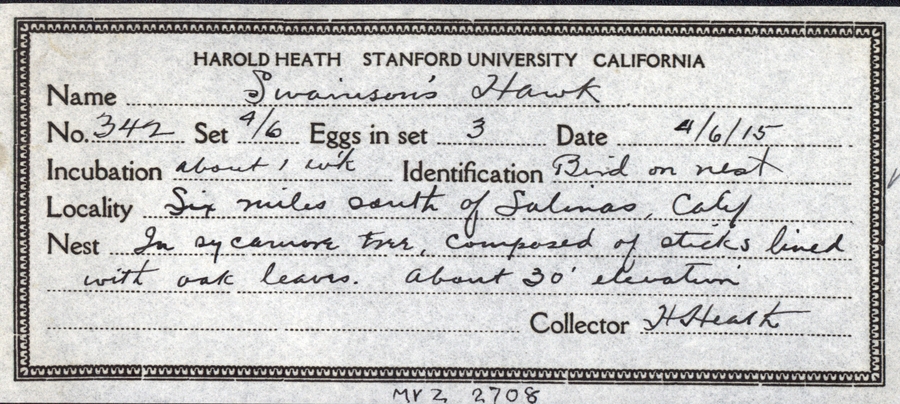 HAROLD HEATH STANFORD UNIVERSITY CALIFORNIA
Name Swainson's Hawk
No. 342 Set 4/6 Eggs in set 3 Date 4/6/15
Incubation about 1 wk Identification Bird on nest
Locality Six miles south of Salinas, Calif
Nest In sycamore tree, composed of sticks lined
with oak leaves. About 30' elevation
Collector H Heath
MVZ 2708